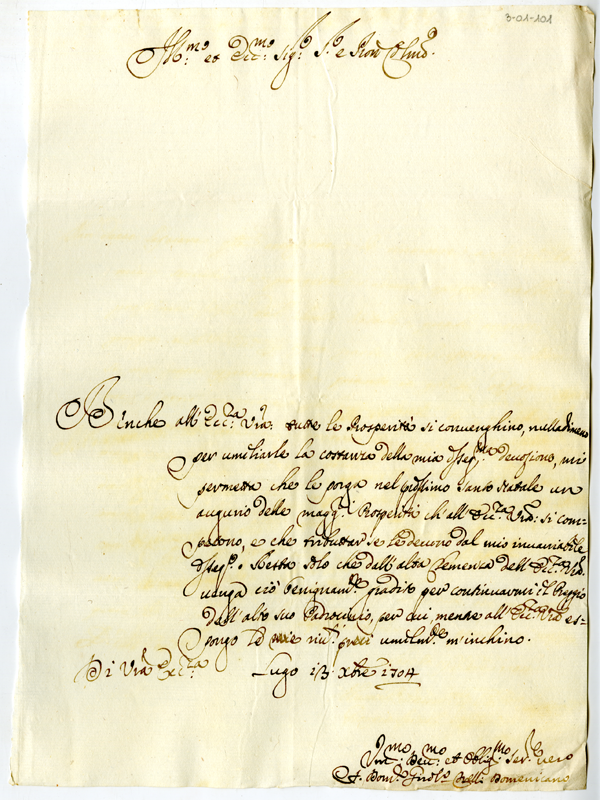 3-01-101
Ill:mo et Ecc:mo Sig:r S:r e Pron Col:mo
Benche all'Ecc:za Vra: tutte le Prosperità si convenghino, nulladimeno
per umiliarle la costanza della mia osseq:ma devozione, mi
permetta che le porga nel prossimo Santo Natale un
augurio delle magg:ri Prosperità ch'all'Ecc:za Vra: si com=
piscono, e che tributtar se le devono dal mio invariabile
Osseq:o. Resta solo che dall'alta Clemenza dell'Ecc:za Vra:
venga ciò benignam:te gradito per continuarmi il Preggio
dell'alto suo Padrocinio, per cui, mentre all'Ecc:za Vra es=
pongo le mie riv:ti preci umilm:te m'inchino.
Di Vra Ecc:za Lugo 13 Xbre 1704
Um:mo Dev:mo et Oblig:mo Ser:re vero
F. Dom:co Domenicano